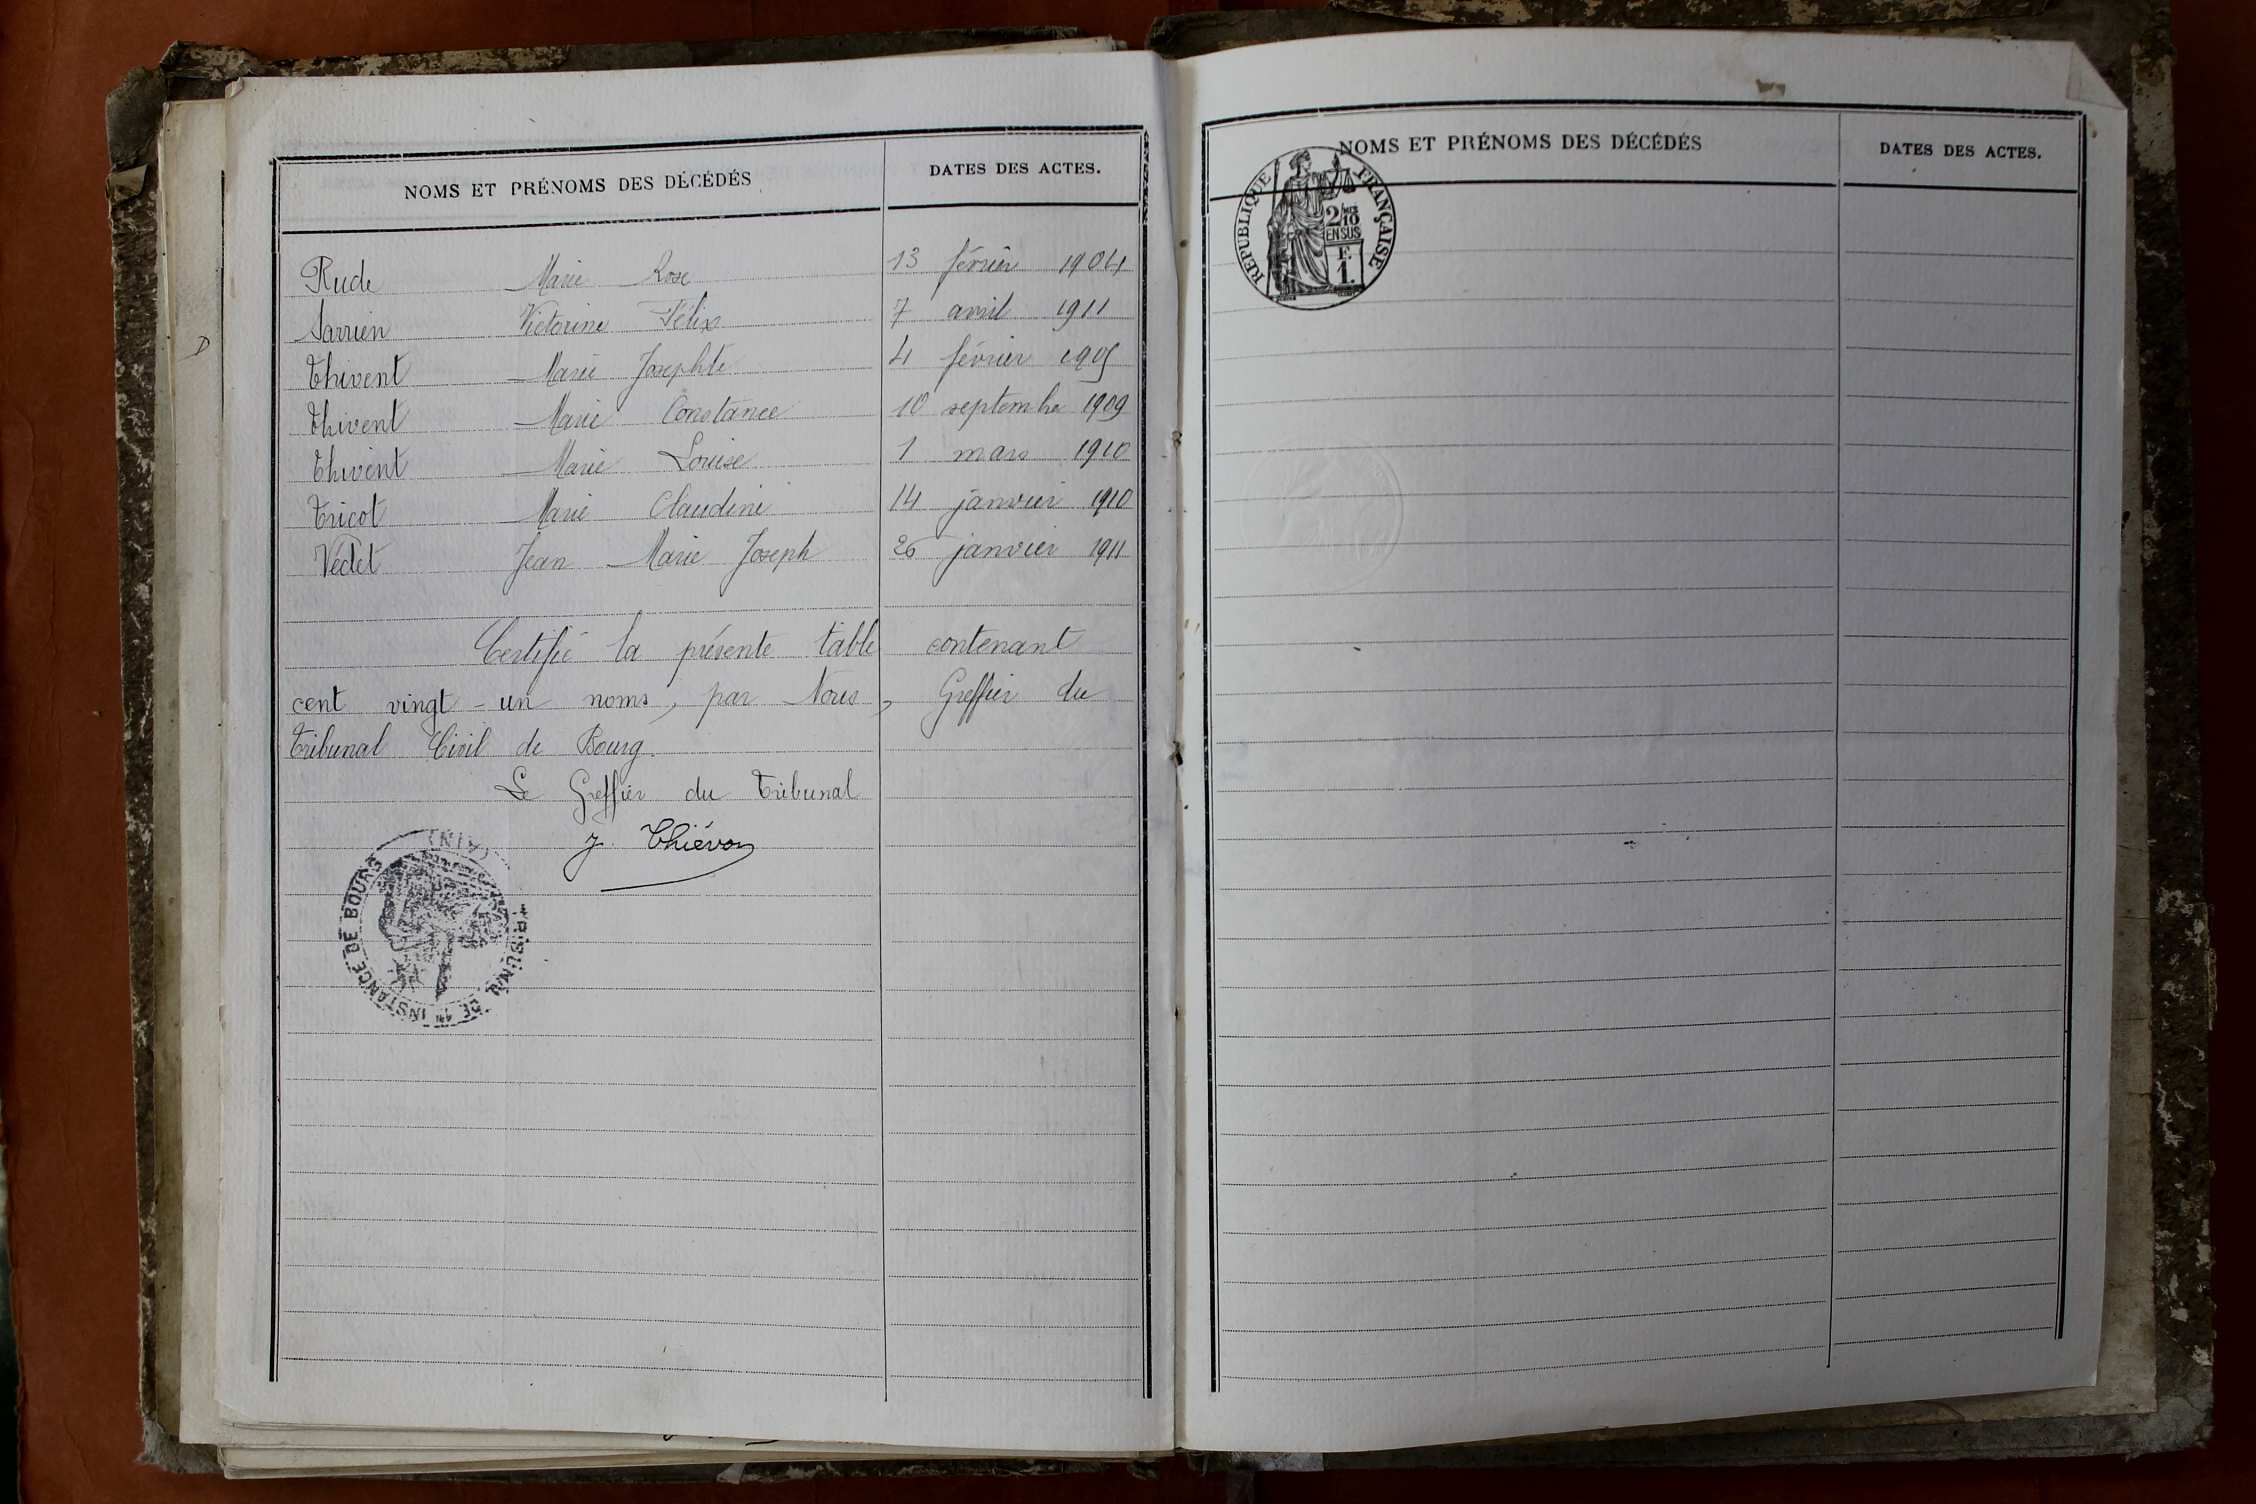 NOMS ET PRÉNOMS DES DÉCÉDÉS DATES DES ACTES.
Rude Marie Rose 13 février 1904
Sarrien Victorine Félix 7 avril 1911
Thivent Marie Josephte 4 février 1905
Thivent Marie Constance 10 septembre 1909
Thivent Marie Louise 1 mars 1910
Tricot Marie Claudine 14 janvier 1910
Védet Jean Marie Joseph 26 janvier 1911
Certifié la présente table contenant
cent vingt-un noms, par Nous, Greffier du
Tribunal Civil de Bourg.
Le Greffier du Tribunal
J. Thiévon
TRIBUNAL DE 1re INSTANCE DE BOURG (AIN)
NOMS ET PRÉNOMS DES DÉCÉDÉS DATES DES ACTES.
RÉPUBLIQUE FRANÇAISE
2/10
EN SUS
F.
1.
D